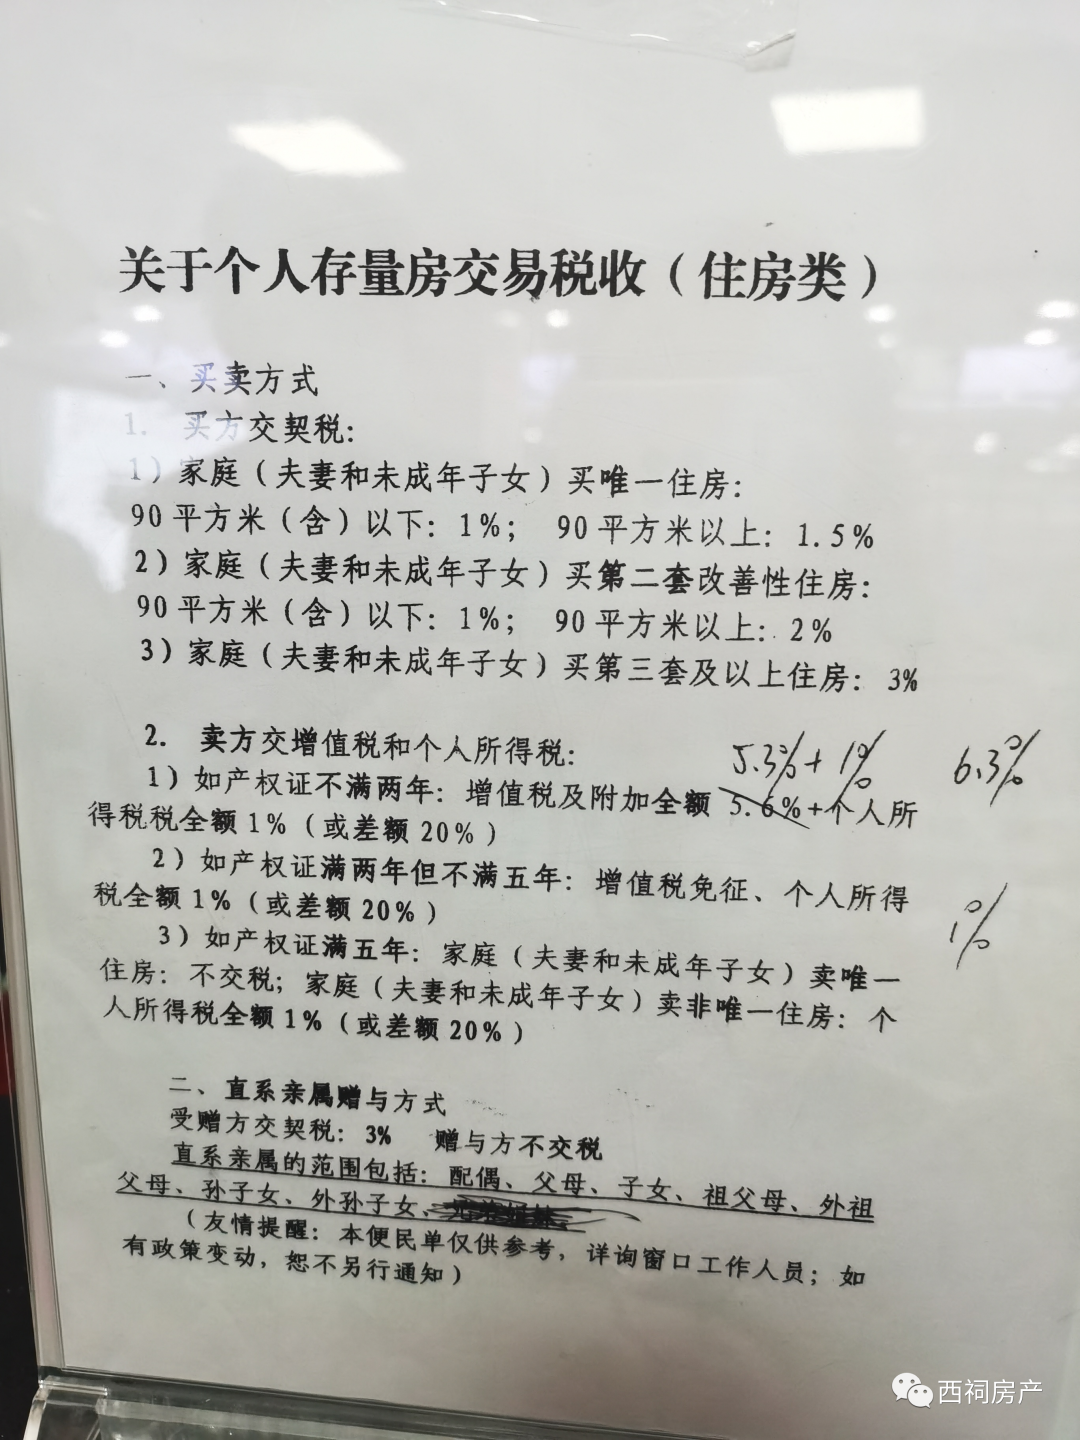 关于个人存量房交易税收（住房类）
一、买卖方式
1. 买方交契税：
1）家庭（夫妻和未成年子女）买唯一住房：
90平方米（含）以下：1%； 90平方米以上：1.5%
2）家庭（夫妻和未成年子女）买第二套改善性住房：
90平方米（含）以下：1%； 90平方米以上：2%
3）家庭（夫妻和未成年子女）买第三套及以上住房：3%
2. 卖方交增值税和个人所得税：
5.3%+1% 6.3%
1）如产权证不满两年：增值税及附加全额5.6%+个人所
得税税全额1%（或差额20%）
2）如产权证满两年但不满五年：增值税免征、个人所得
税全额1%（或差额20%）
1%
3）如产权证满五年：家庭（夫妻和未成年子女）卖唯一
住房：不交税；家庭（夫妻和未成年子女）卖非唯一住房：个
人所得税全额1%（或差额20%）
二、直系亲属赠与方式
受赠方交契税：3% 赠与方不交税
直系亲属的范围包括：配偶、父母、子女、祖父母、外祖
父母、孙子女、外孙子女、
（友情提醒：本便民单仅供参考，详询窗口工作人员；如
有政策变动，恕不另行通知）
西祠房产